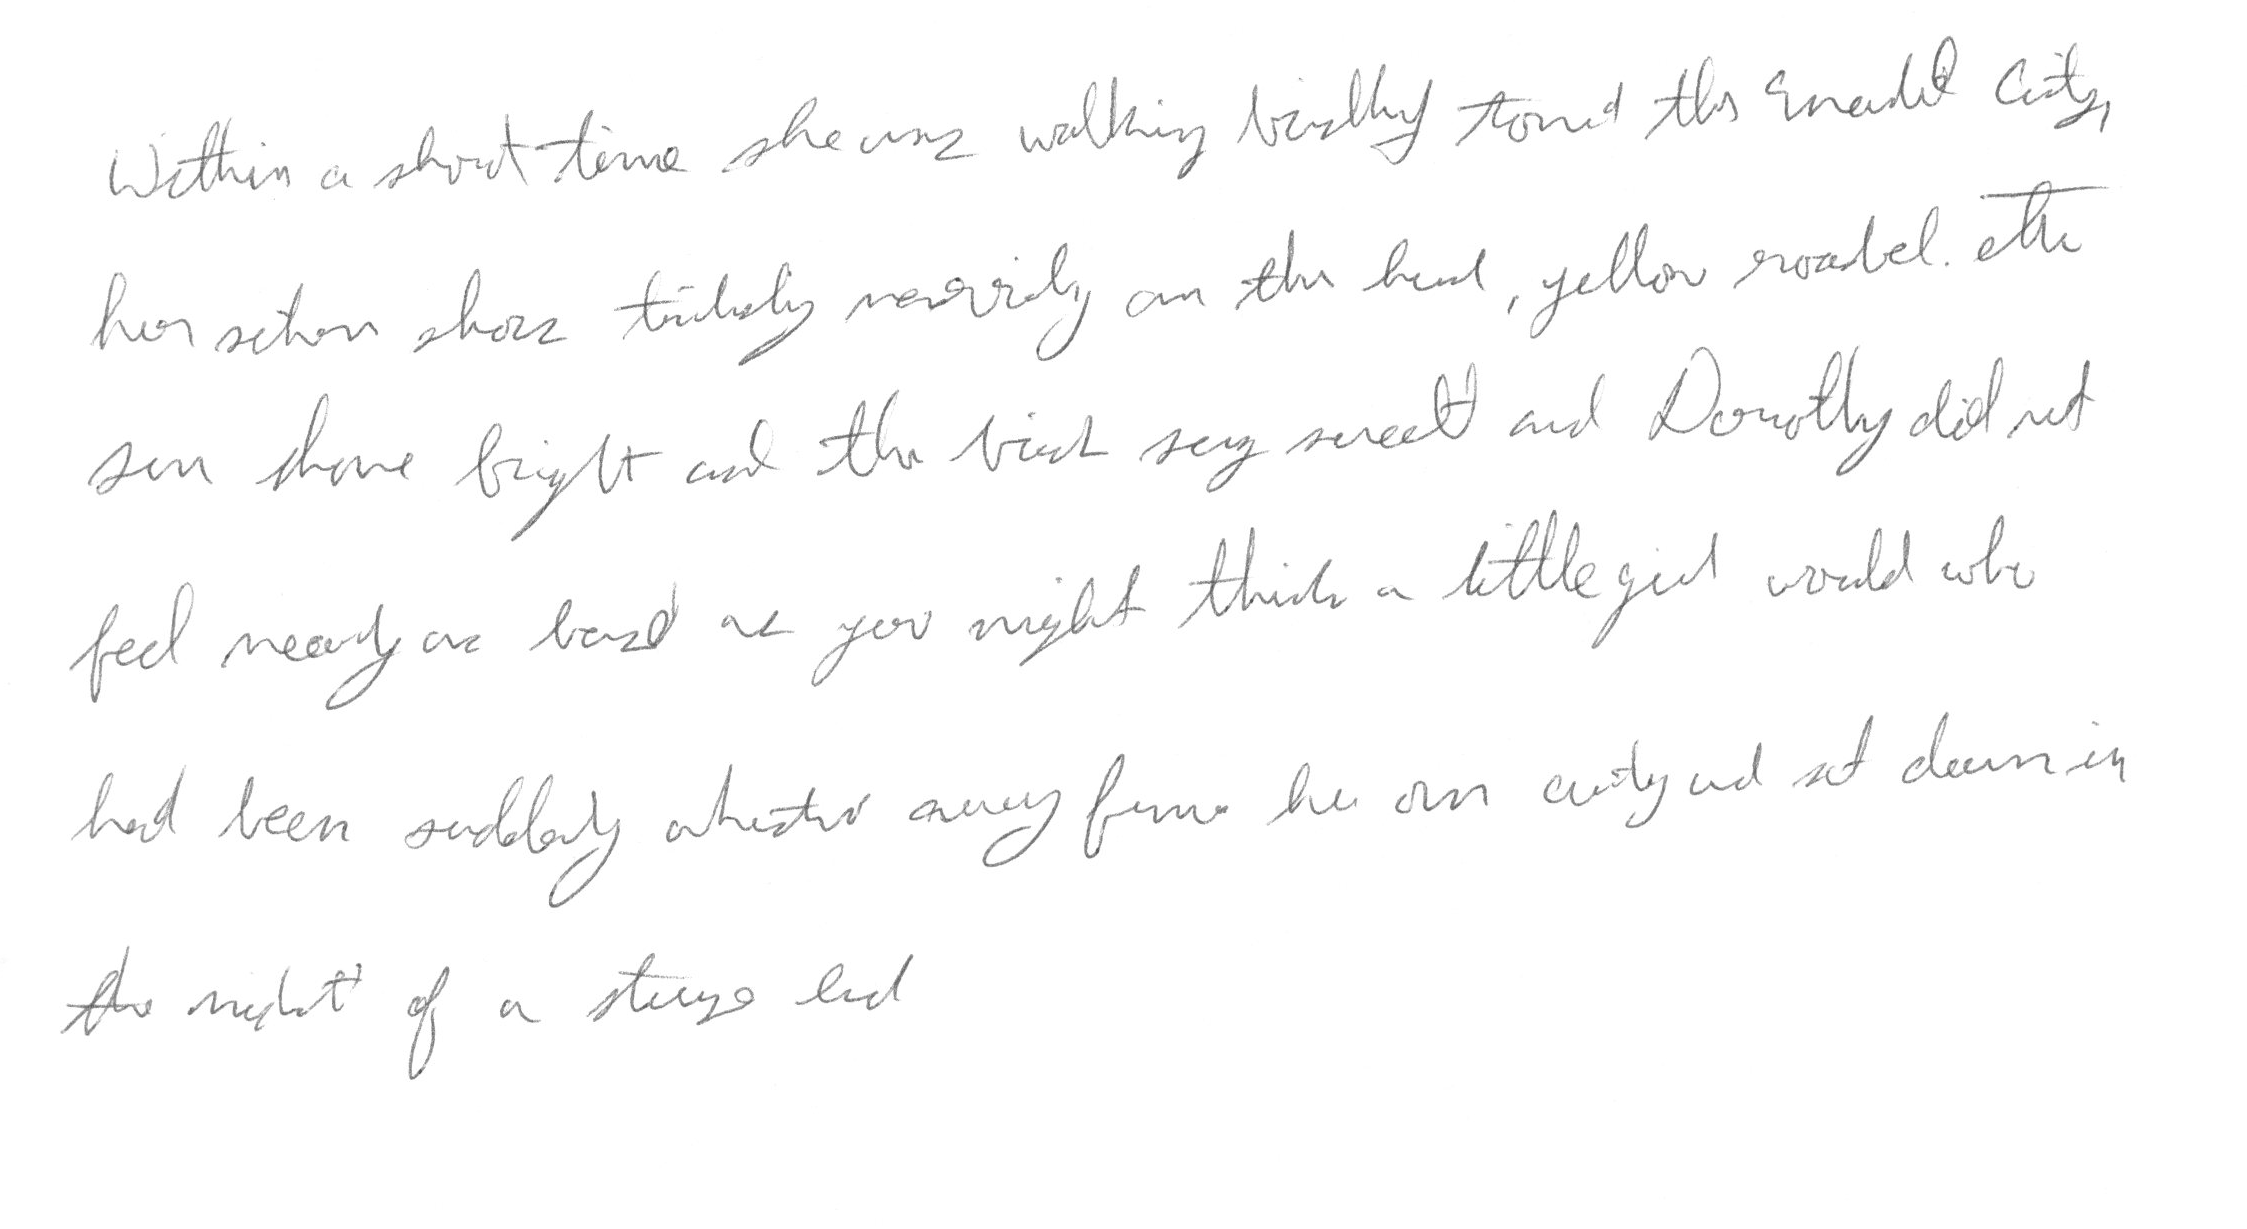 Within a short time she was walking briskly toward the Emerald City,
her silver shoes tinkling merrily on the hard, yellow roadbed. The
sun shone bright and the birds sang sweet and Dorothy did not
feel nearly as bad as you might think a little girl would who
had been suddenly whisked away from her own country and set down in
the midst of a strange land